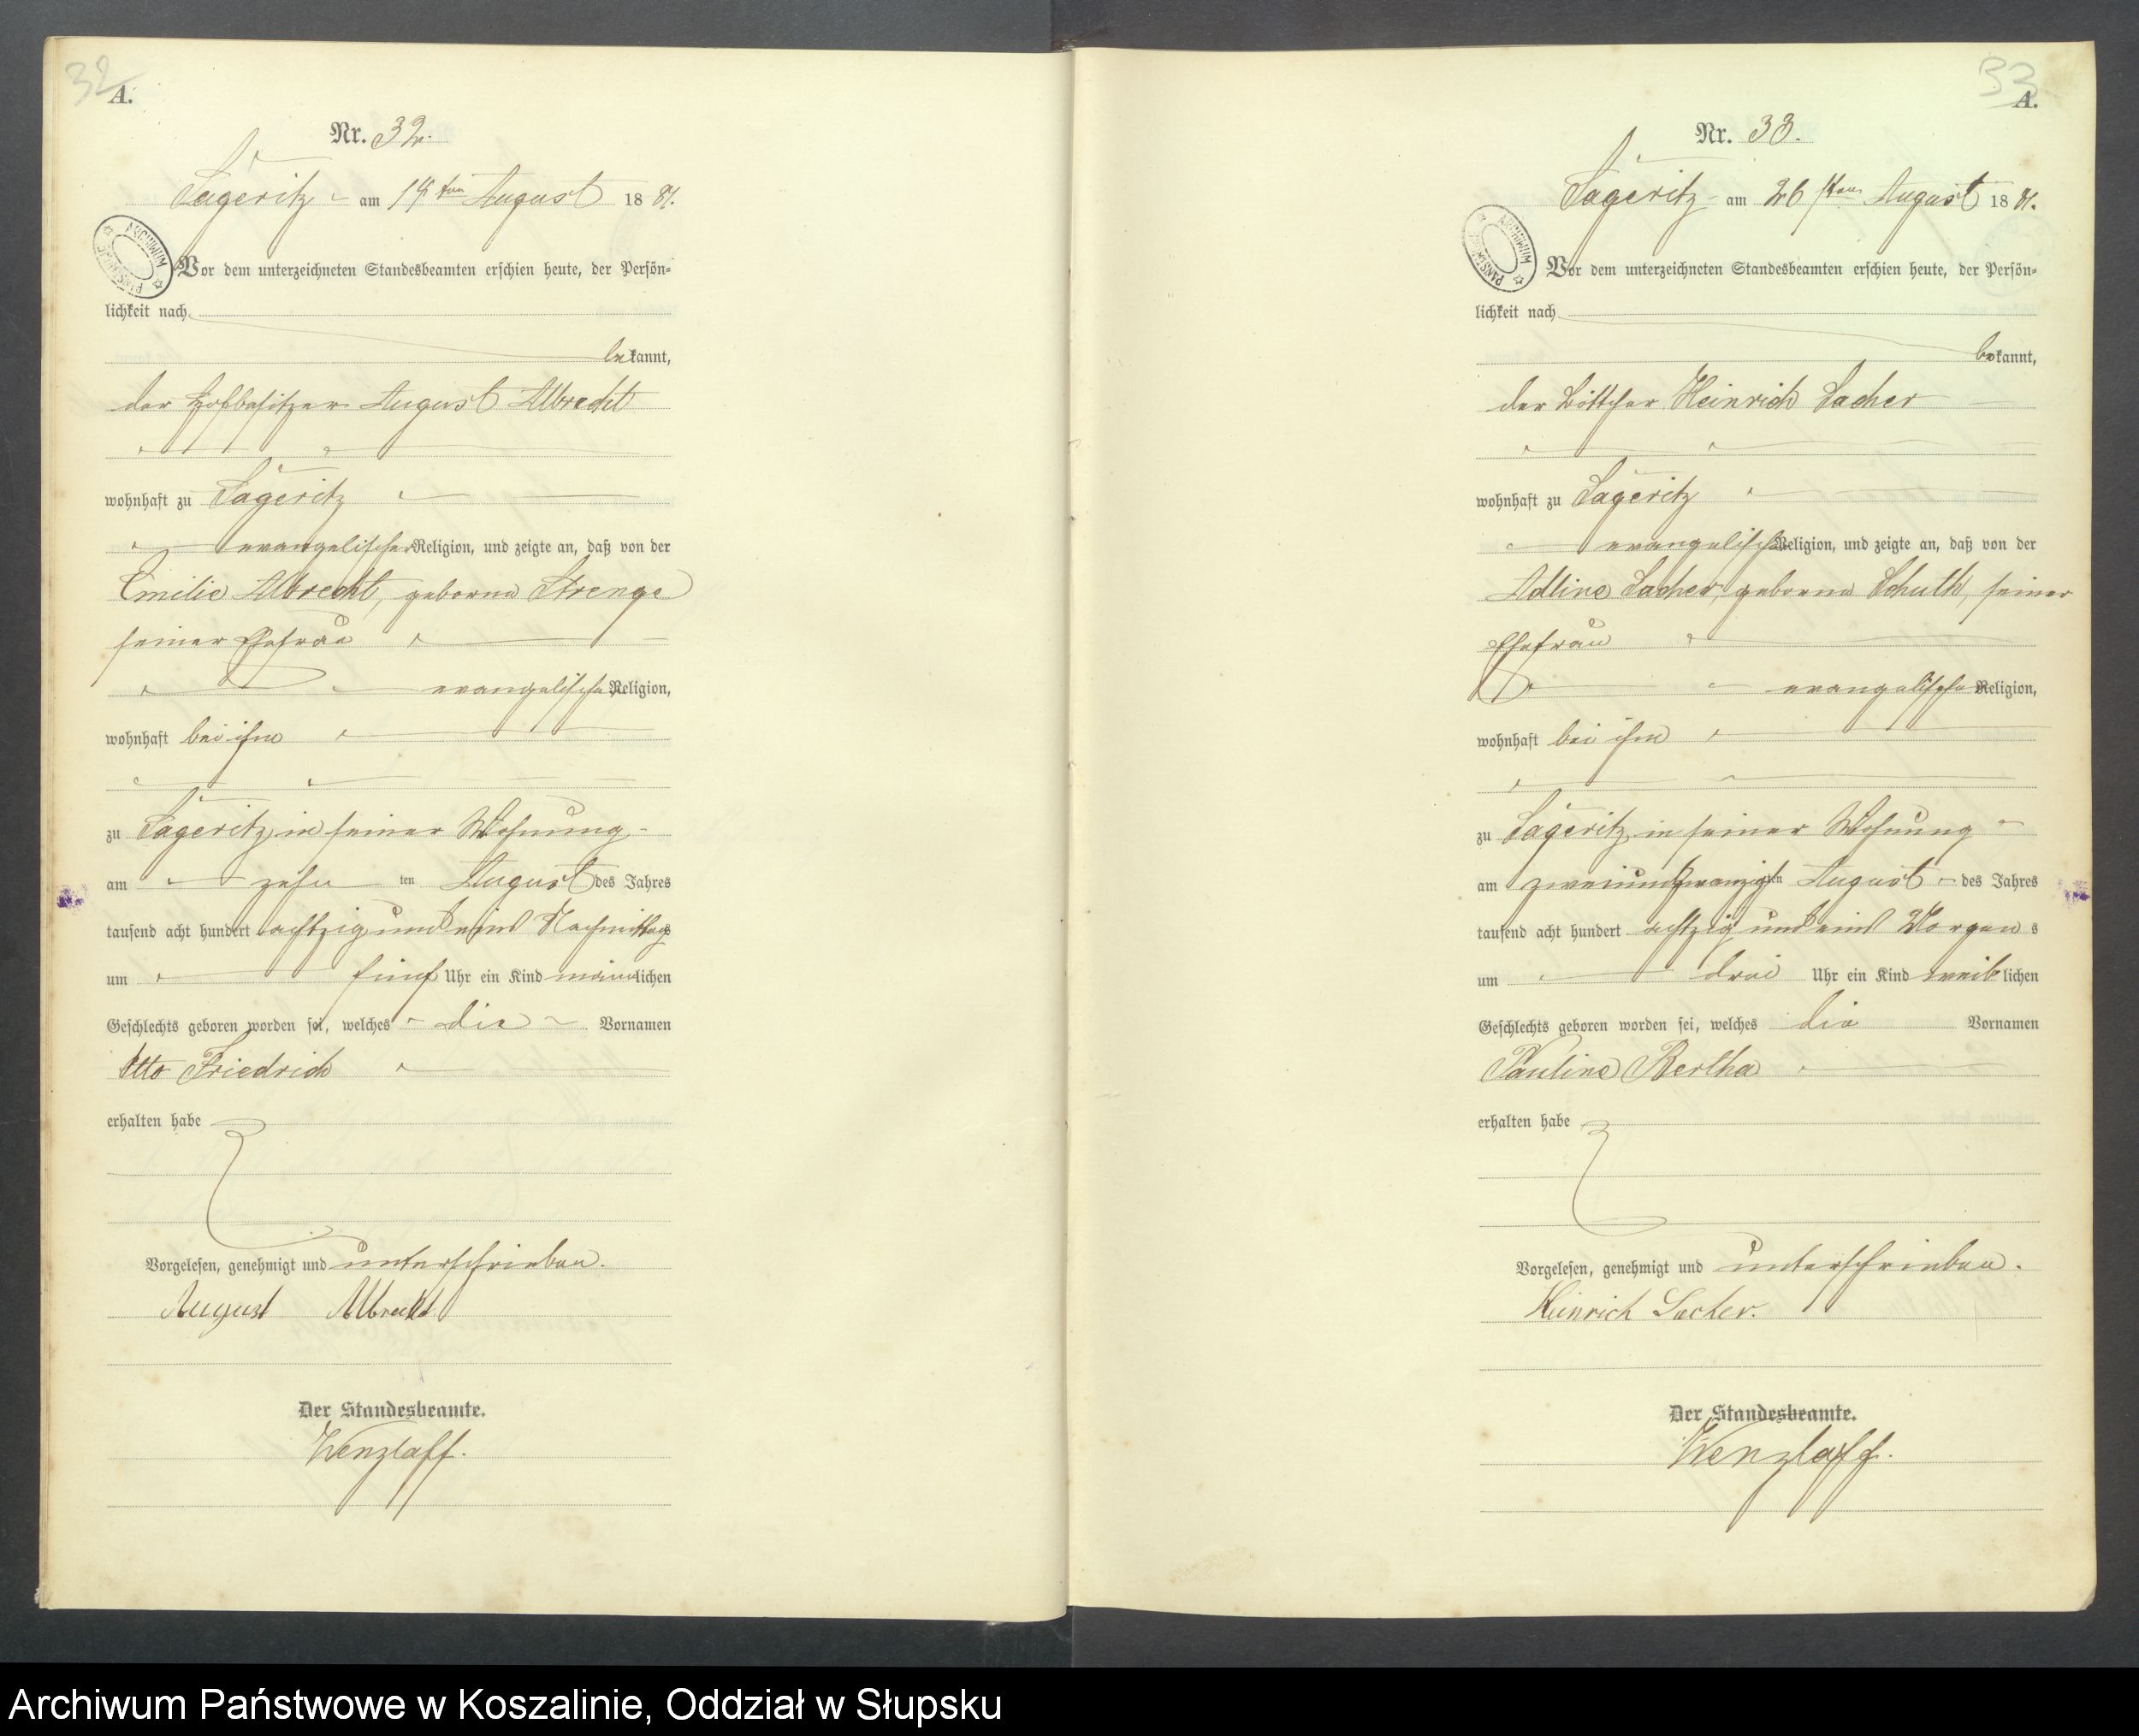 32
A.
Nr. 32.
Sageritz am 14ten August 1881.
Vor dem unterzeichneten Standesbeamten erschien heute, der Persön-
lichkeit nach
bekannt,
der Hofbesitzer August Albrecht
wohnhaft zu Sageritz
evangelischer Religion, und zeigte an, daß von der
Emilie Albrecht, geborne Strenge
seiner Ehefrau
evangelischer Religion,
wohnhaft bei ihm
zu Sageritz in seiner Wohnung
am zehnten August des Jahres
tausend acht hundert achtzig und eins Nachmittags
um fünf Uhr ein Kind männlichen
Geschlechts geboren worden sei, welches die Vornamen
Otto Friedrich
erhalten habe
Vorgelesen, genehmigt und unterschrieben.
August Albrecht
Der Standesbeamte.
Wenzlaff.
33
A.
Nr. 33.
Sageritz am 26sten August 1881.
Vor dem unterzeichneten Standesbeamten erschien heute, der Persön-
lichkeit nach
bekannt,
der Böttcher Heinrich Sacher
wohnhaft zu Sageritz
evangelischer Religion, und zeigte an, daß von der
Adline Sacher, geborne Schuth, seiner
Ehefrau
evangelischer Religion,
wohnhaft bei ihm
zu Sageritz in seiner Wohnung
am zweiundzwanzigten August des Jahres
tausend acht hundert achtzig und eins Morgens
um drei Uhr ein Kind weiblichen
Geschlechts geboren worden sei, welches die Vornamen
Pauline Bertha
erhalten habe
Vorgelesen, genehmigt und unterschrieben.
Heinrich Sacher.
Der Standesbeamte.
Wenzlaff.
Archiwum Państwowe w Koszalinie, Oddział w Słupsku